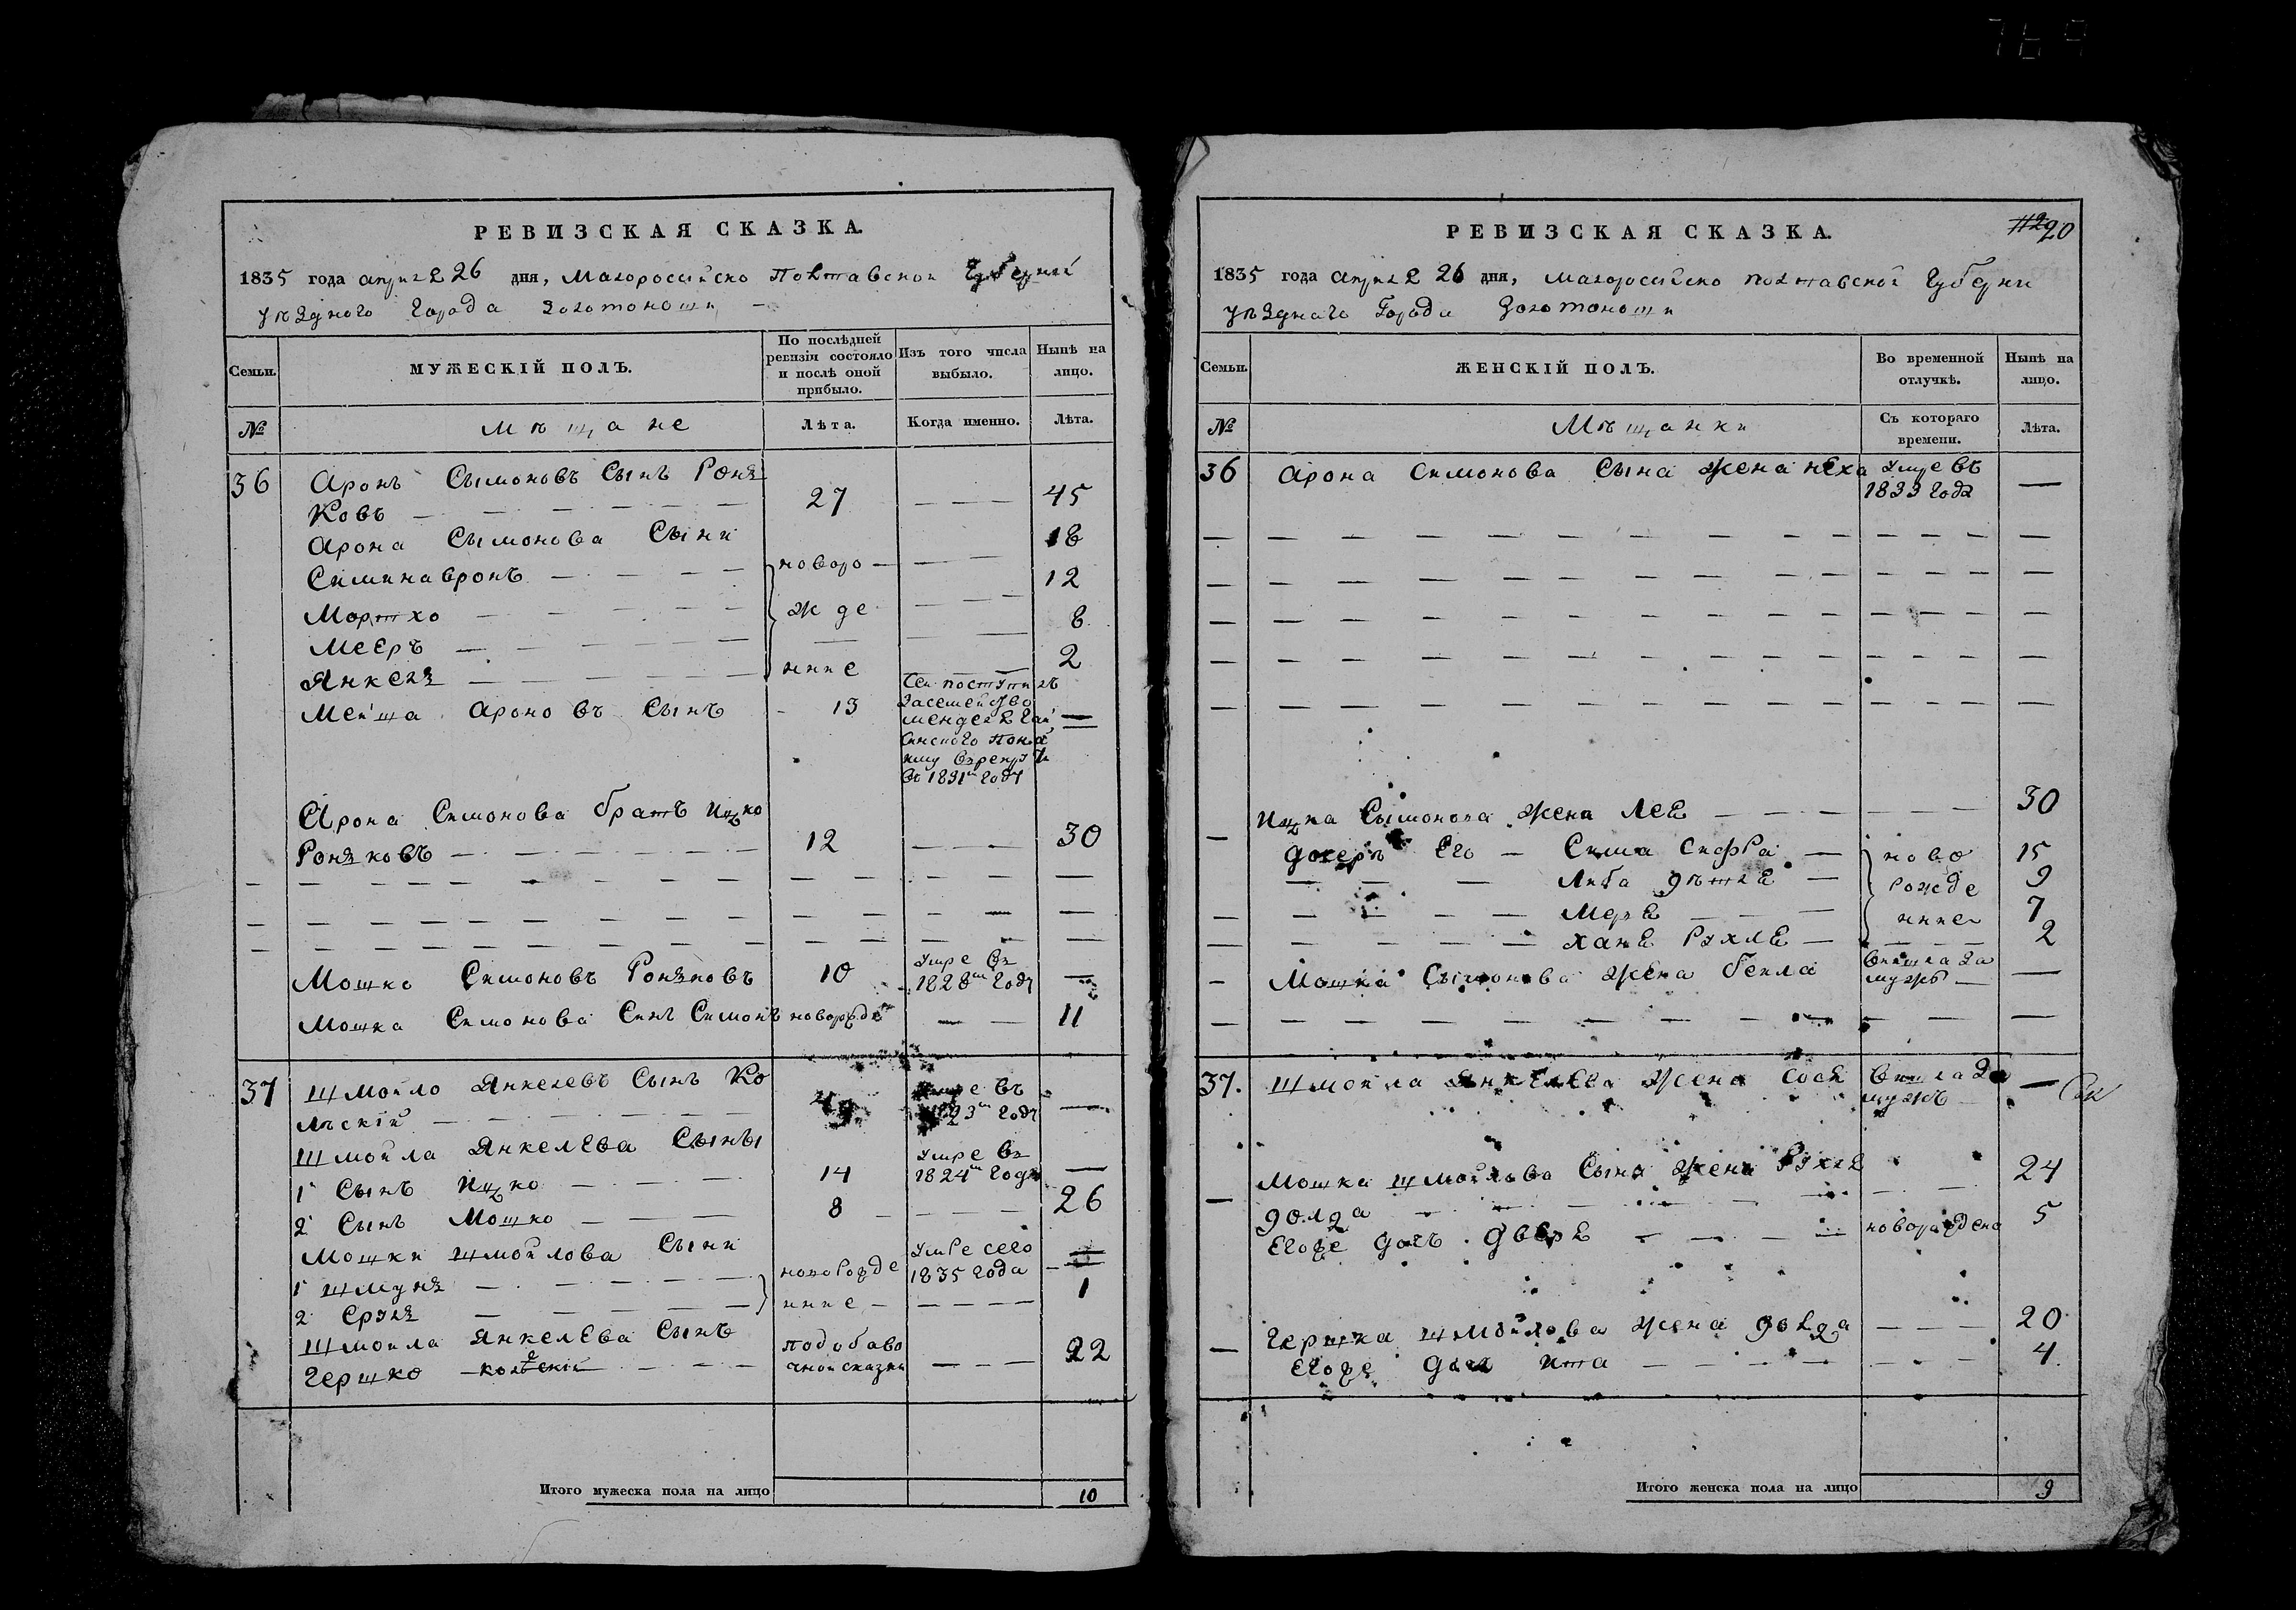 РЕВИЗСКАЯ СКАЗКА.
1835 года априля 26 дня, Малоросийско Полтавской Губернии
уѣзднаго Города Золотоноши
Семьи.
МУЖЕСКІЙ ПОЛЪ.
По послѣдней ревизіи состояло и послѣ оной прибыло.
Изъ того числа выбыло.
Нынѣ на лицо.
№
Мѣщане
Лѣта.
Когда именно.
Лѣта.
36 Аронъ Сымоновъ Сынъ Роня
ковъ — 27 — 45
Арона Сымонова Сыни 18
Симинавронъ — новоро — 12
Мортхо — жде — 8
Мееръ — 2
Янкеля — ние
Мейша Ароновъ Сынъ 13 Сей поступилъ
за семейство
Менделя Гай
синского
въ рекруты
въ 1831м году —
Арона Симонова братъ Ицко
Роняковъ — 12 — 30
Мошко Симоновъ Роняковъ 10 умре въ
1828м году —
Мошка Симонова Синъ Симонъ новорожде — 11
37 Шмойло Янкелевъ Сынъ Ко
лѣскій — 49 умре въ
1823м году —
Шмойла Янкелева Сыны
1 Сынъ Ицко — 14 умре въ
1824м году —
2 Сынъ Мошко — 8 — 26
Мошки Шмойлова Сыни
1 Шмуня — новорожде умре сего
1835 года —
2 Сруля — ние — 1
Шмойла Янкелева Сынъ
Гершко Колѣскій — подобаво
чной сказки — 22
Итого мужеска пола на лицо 10
РЕВИЗСКАЯ СКАЗКА.
20
1835 года Априля 26 дня, Малоросийско Полтавской Губерни
уѣзднаго Города Золотоноши
Семьи.
ЖЕНСКІЙ ПОЛЪ.
Во временной отлучкѣ.
Нынѣ на лицо.
№
Мѣщанки
Съ котораго времени.
Лѣта.
36 Арона Симонова Сына жена Нѣха умре въ
1833 года —
Ицка Сымонова жена Лея — 30
дочеръ Его — Сима Сифра — ново 15
Либа — рожде 9
Меря — ние 7
Хане Рухле — 2
Мошка Сымонова жена Бейла вишла за
мужъ —
37. Шмойла Янкелева жена Сося вишла за
мужъ —
Мошка Шмойлова Сына жена Рухля 24
Голда
Егоже дочъ Дверя — новорождена 5
Гершка Шмойлова жена Голда — 20
Егоже дочь Ита — 4
Итого женска пола на лицо 9